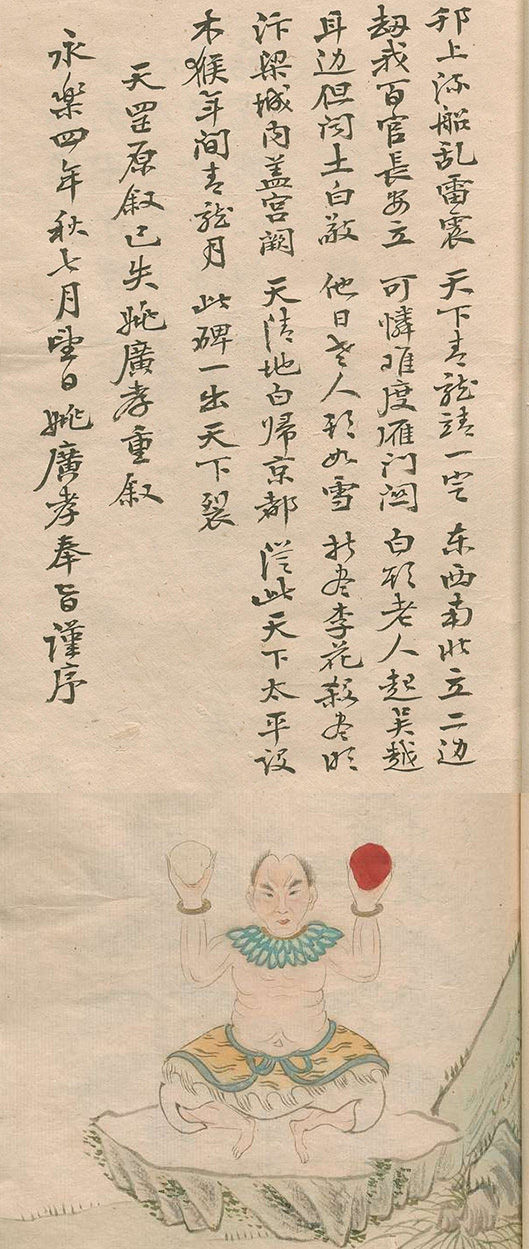 上流船乱雷震 天下青龙靖一空 东西南北立二边
劫我百官長安立 可憐难度雁门関 白头老人起吴越
耳边但闻土白敲 他日老人头如雪 折尽李花殺尽明
汴梁城内盖宫阙 天清地白帰京都 従此天下太平设
木猴年间青龙月 此碑一出天下裂
天罡原叙已失姚廣孝重叙
永樂四年秋七月望日姚廣孝奉旨謹序